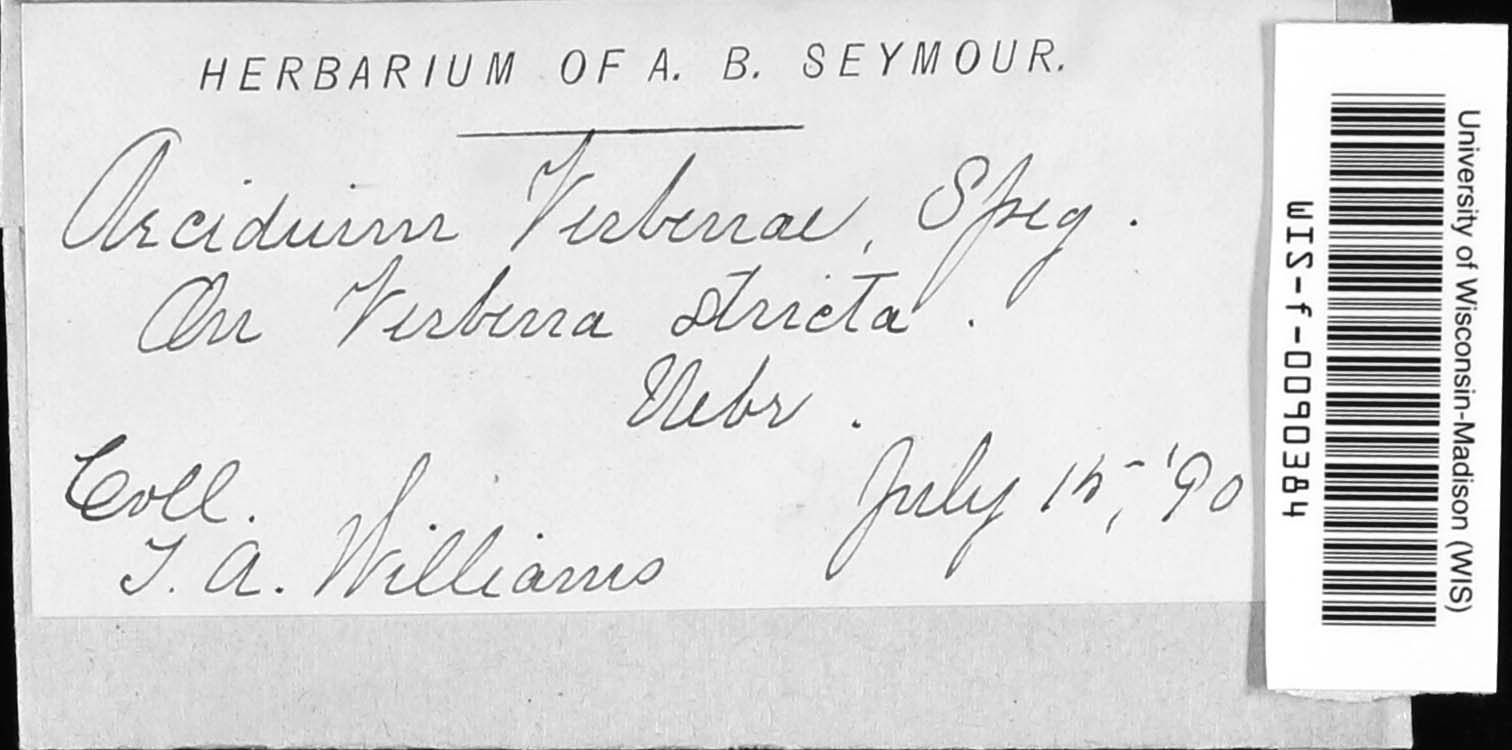 HERBARIUM OF A. B. SEYMOUR.
Aecidium Verbenae, Speg.
On Verbena stricta.
Nebr.
Coll.
July 15, '90
T. A. Williams
University of Wisconsin-Madison (WIS)
WIS-f-0090384